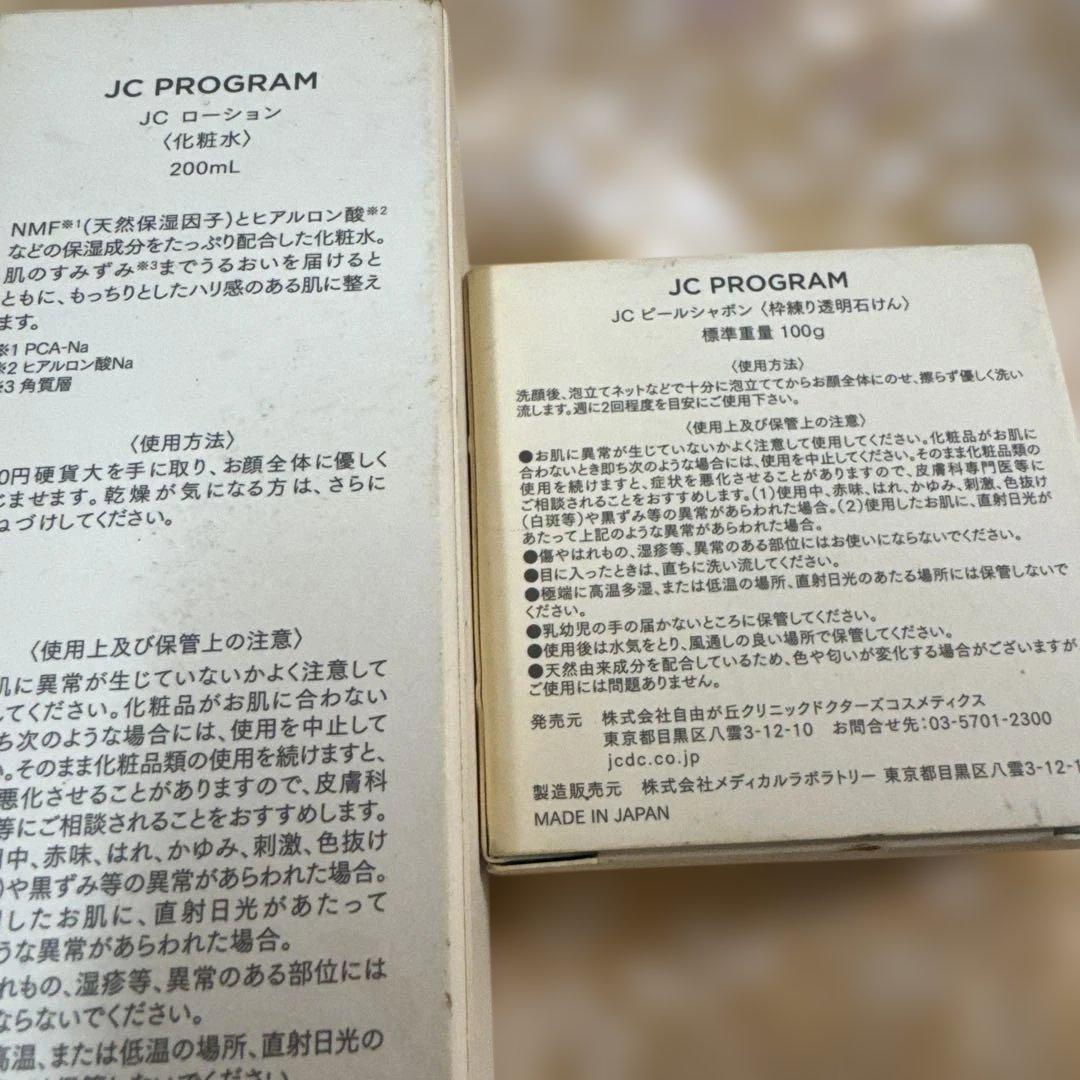 JC PROGRAM
JC ローション
〈化粧水〉
200mL
NMF※1(天然保湿因子)とヒアルロン酸※2
などの保湿成分をたっぷり配合した化粧水。
肌のすみずみ※3までうるおいを届けると
ともに、もっちりとしたハリ感のある肌に整え
ます。
※1 PCA-Na
※2 ヒアルロン酸Na
※3 角質層
〈使用方法〉
0円硬貨大を手に取り、お顔全体に優しく
じませます。乾燥が気になる方は、さらに
ねづけしてください。
〈使用上及び保管上の注意〉
肌に異常が生じていないかよく注意して
してください。化粧品がお肌に合わない
ち次のような場合には、使用を中止して
い。そのまま化粧品類の使用を続けますと、
悪化させることがありますので、皮膚科
等にご相談されることをおすすめします。
用中、赤味、はれ、かゆみ、刺激、色抜け
)や黒ずみ等の異常があらわれた場合。
用したお肌に、直射日光があたって
うな異常があらわれた場合。
れもの、湿疹等、異常のある部位には
ならないでください。
高温、または低温の場所、直射日光の
JC PROGRAM
JC ピールシャボン〈枠練り透明石けん〉
標準重量 100g
〈使用方法〉
洗顔後、泡立てネットなどで十分に泡立ててからお顔全体にのせ、擦らず優しく洗い
流します。週に2回程度を目安にご使用下さい。
〈使用上及び保管上の注意〉
●お肌に異常が生じていないかよく注意して使用してください。化粧品がお肌に
合わないとき即ち次のような場合には、使用を中止してください。そのまま化粧品類の
使用を続けますと、症状を悪化させることがありますので、皮膚科専門医等に
ご相談されることをおすすめします。(1)使用中、赤味、はれ、かゆみ、刺激、色抜け
(白斑等)や黒ずみ等の異常があらわれた場合。(2)使用したお肌に、直射日光が
あたって上記のような異常があらわれた場合。
●傷やはれもの、湿疹等、異常のある部位にはお使いにならないでください。
●目に入ったときは、直ちに洗い流してください。
●極端に高温多湿、または低温の場所、直射日光のあたる場所には保管しないで
ください。
●乳幼児の手の届かないところに保管してください。
●使用後は水気をとり、風通しの良い場所で保管してください。
●天然由来成分を配合しているため、色や匂いが変化する場合がございますが、
ご使用には問題ありません。
発売元 株式会社自由が丘クリニックドクターズコスメティクス
東京都目黒区八雲3-12-10 お問合せ先:03-5701-2300
jcdc.co.jp
製造販売元 株式会社メディカルラボラトリー 東京都目黒区八雲3-12-1
MADE IN JAPAN